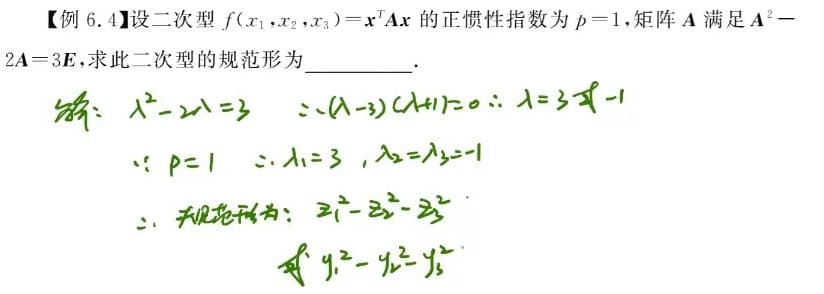 【例 6.4】设二次型 f(x₁,x₂,x₃)=xᵀAx 的正惯性指数为 p=1,矩阵 A 满足 A²－
2A=3E,求此二次型的规范形为________.
解: λ²-2λ=3 ∴(λ-3)(λ+1)=0 ∴ λ=3或-1
∵ p=1 ∴ λ₁=3, λ₂=λ₃=-1
∴ 规范形为: z₁²-z₂²-z₃²
或 y₁²-y₂²-y₃²